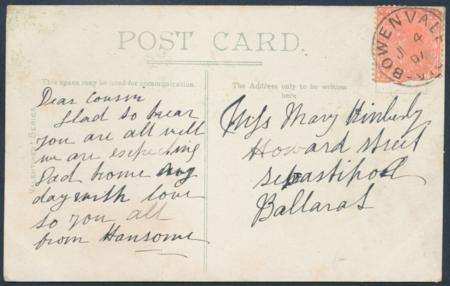 POST CARD.
This space may be used for communication.
The Address only to be written here.
BOWENVALE
4
07
Dear Cousin
Glad to hear
you are all well
we are expecting
Dad home any
day with love
to you all
from Hansome
Miss Mary Kimberly
Howard street
Sebastipol
Ballarat